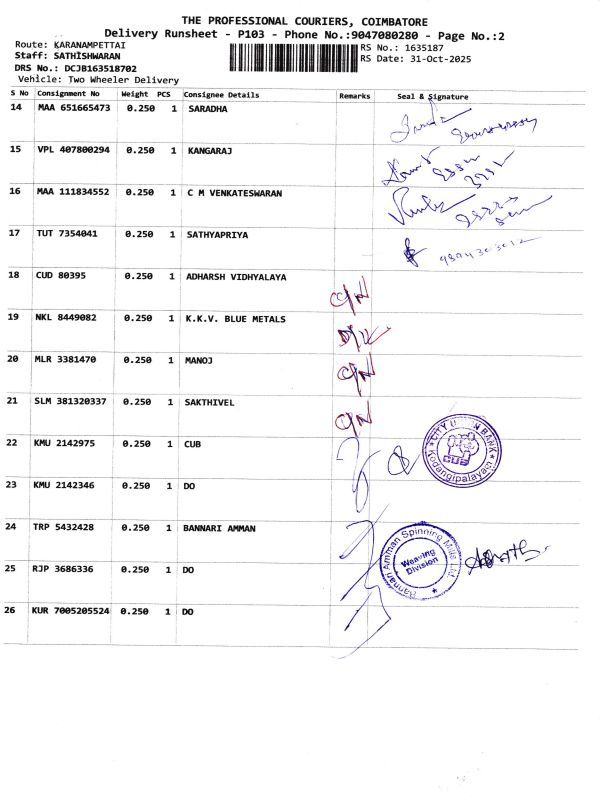 THE PROFESSIONAL COURIERS, COIMBATORE
Delivery Runsheet - P103 - Phone No.:9047080280 - Page No.:2
Route: KARANAMPETTAI
Staff: SATHISHWARAN
DRS No.: DCJB163518702
Vehicle: Two Wheeler Delivery
RS No.: 1635187
RS Date: 31-Oct-2025
S No Consignment No Weight PCS Consignee Details Remarks Seal & Signature
14 MAA 651665473 0.250 1 SARADHA
15 VPL 407800294 0.250 1 KANGARAJ
16 MAA 111834552 0.250 1 C M VENKATESWARAN
17 TUT 7354041 0.250 1 SATHYAPRIYA
18 CUD 80395 0.250 1 ADHARSH VIDHYALAYA C/N
19 NKL 8449082 0.250 1 K.K.V. BLUE METALS
20 MLR 3381470 0.250 1 MANOJ C/N
21 SLM 381320337 0.250 1 SAKTHIVEL C/N
22 KMU 2142975 0.250 1 CUB
CITY UNION BANK
CUB
Kodangipalayam
23 KMU 2142346 0.250 1 DO
24 TRP 5432428 0.250 1 BANNARI AMMAN
Bannari Amman Spinning Mills Ltd
Weaving
Division
25 RJP 3686336 0.250 1 DO
26 KUR 7005205524 0.250 1 DO